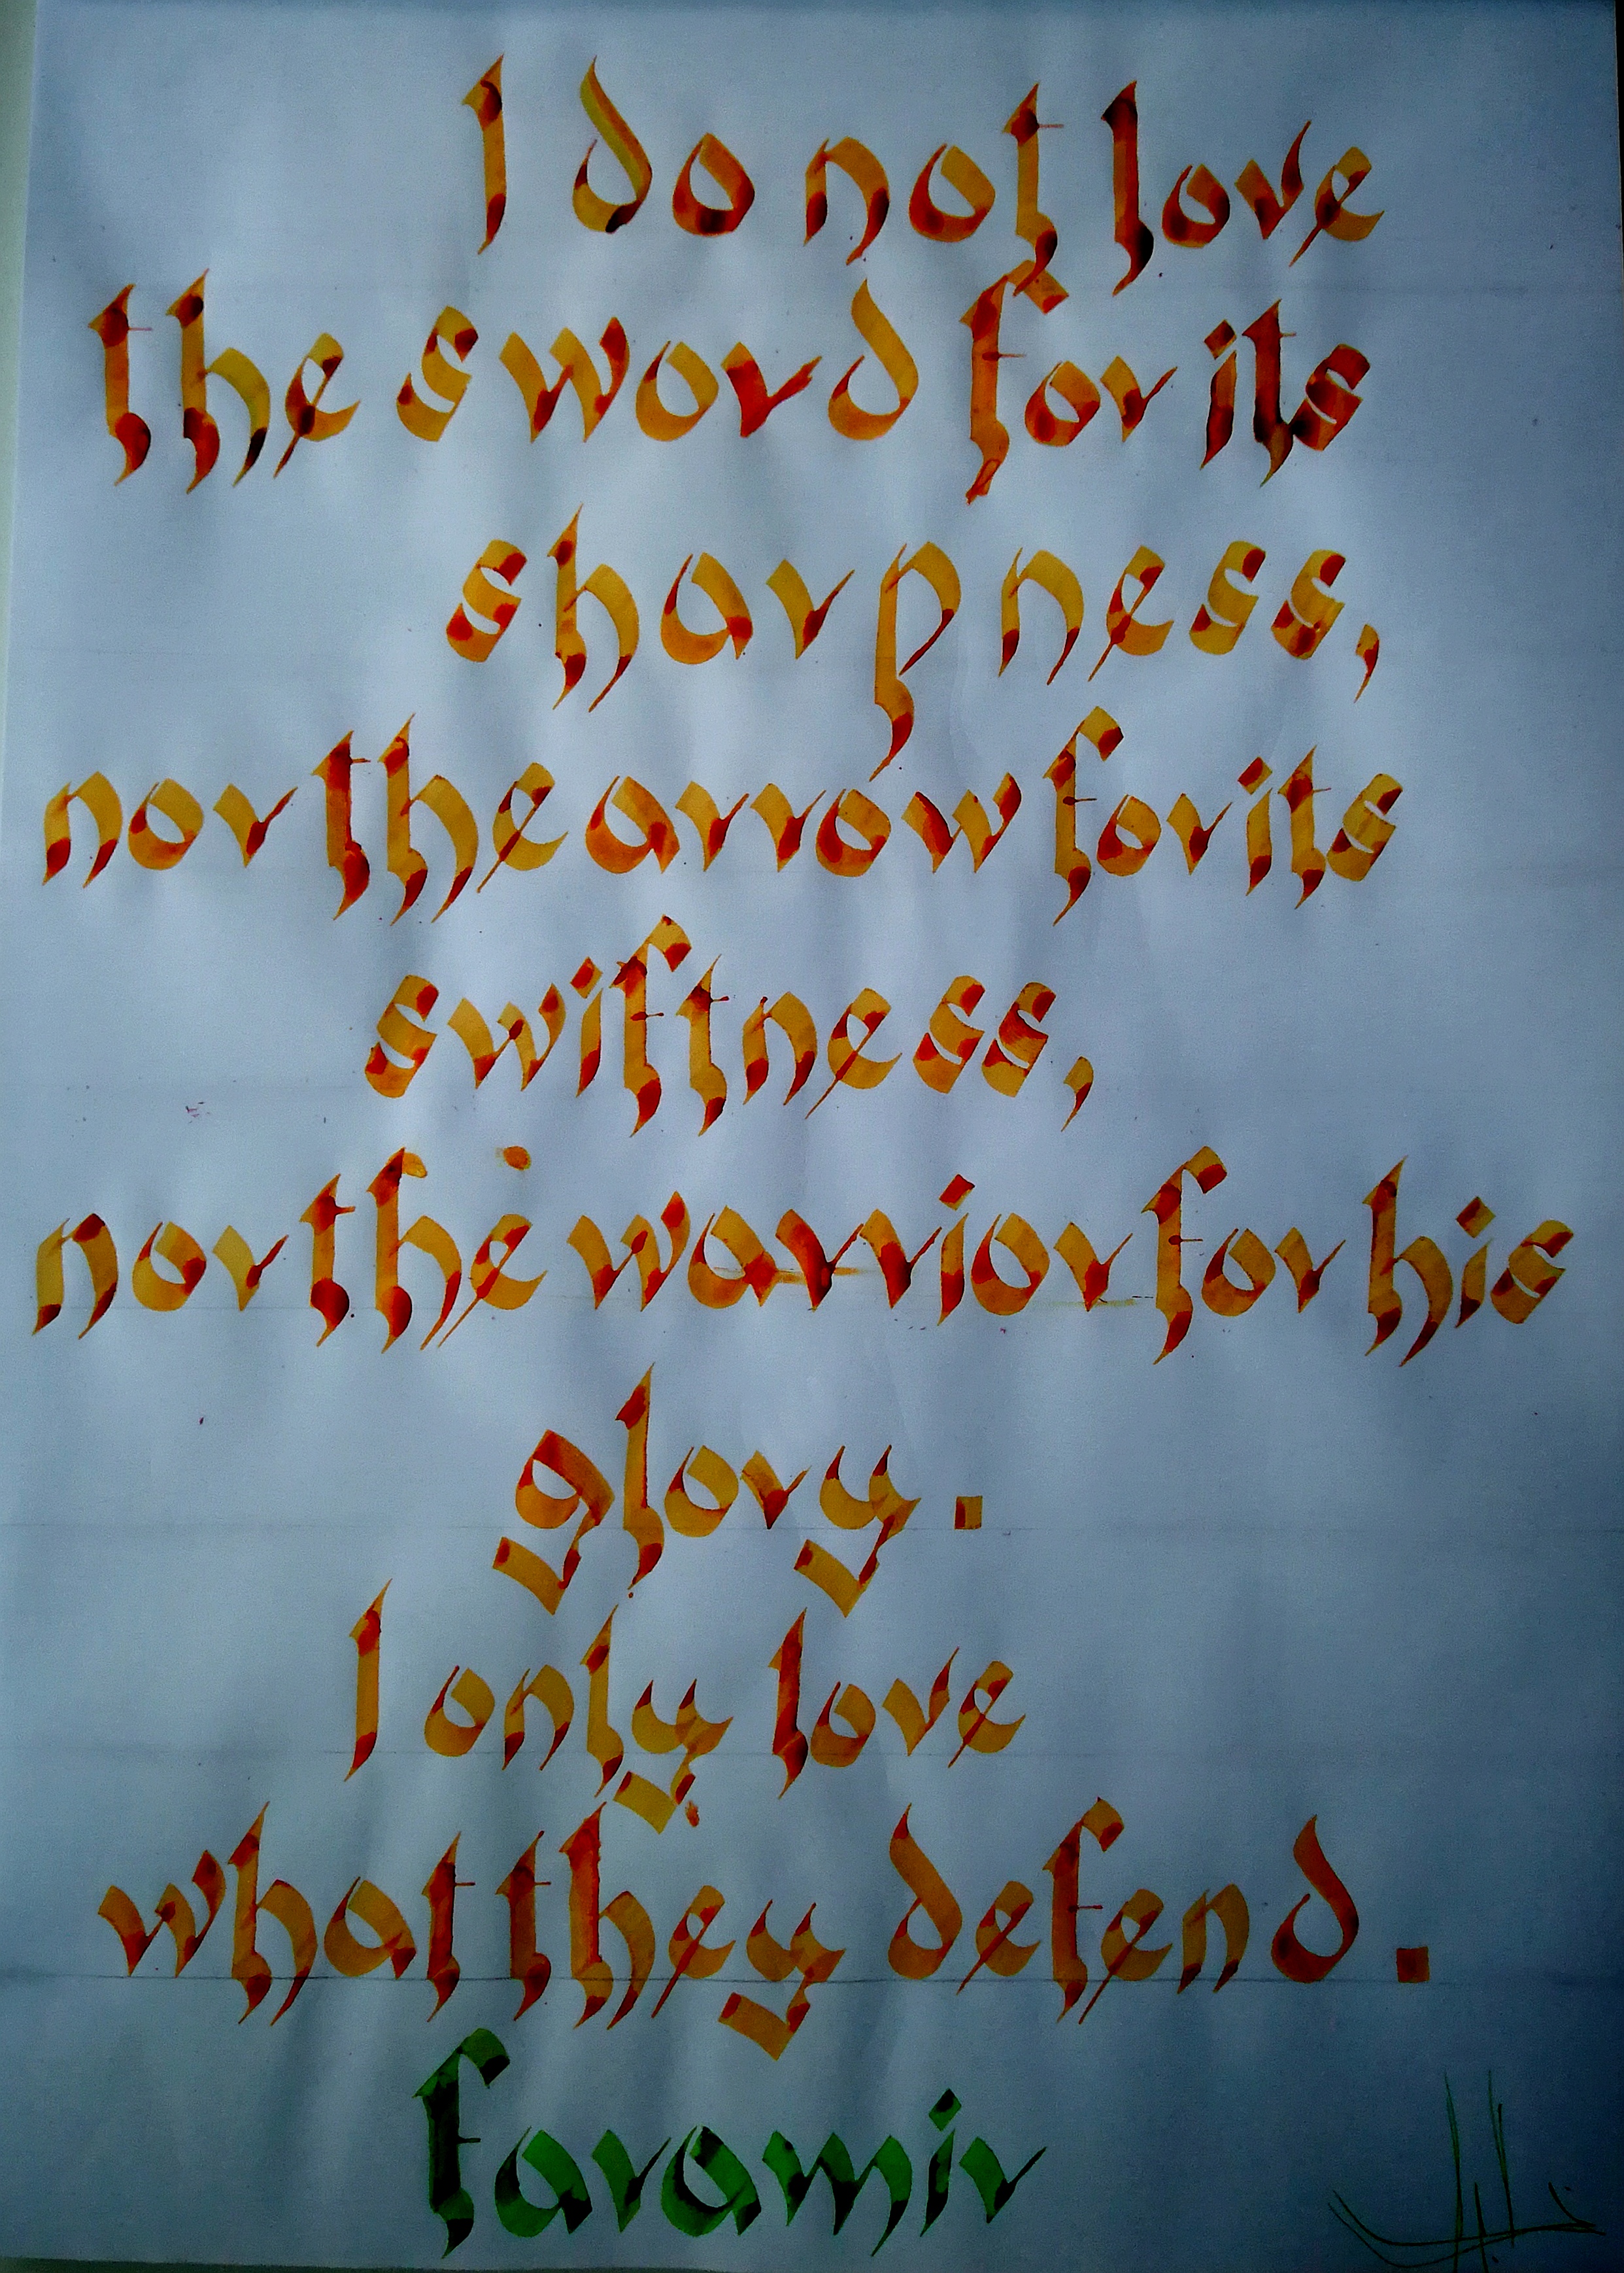 I do not love
the sword for its
sharpness,
nor the arrow for its
swiftness,
nor the warrior for his
glory.
I only love
what they defend.
faramir